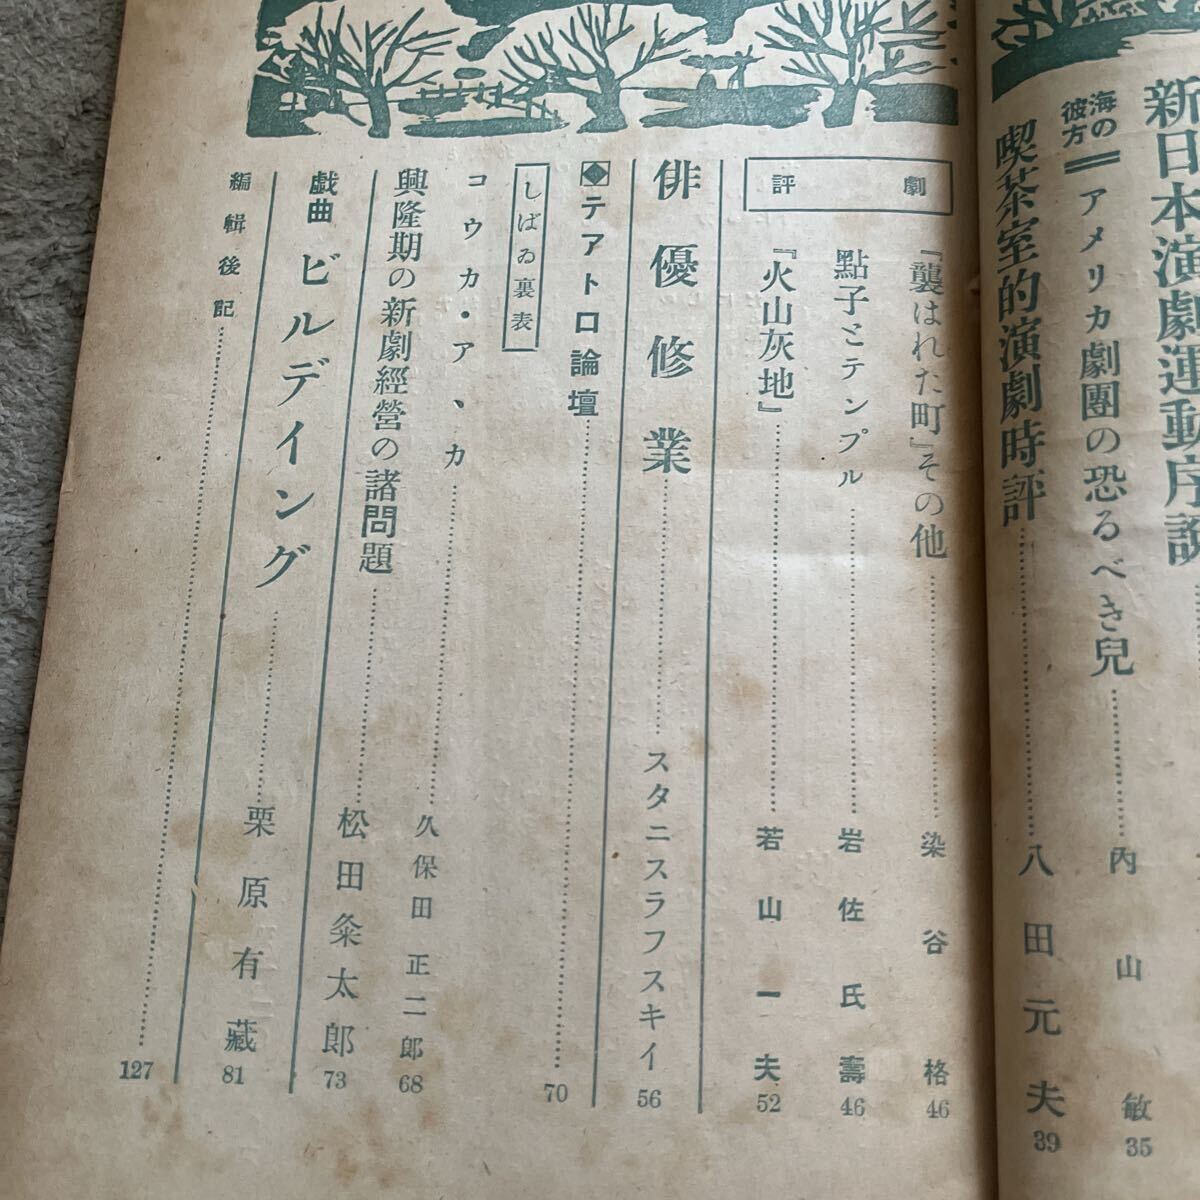 新日本演劇運動序説
海の彼方
アメリカ劇團の恐るべき兒……内山敏 35
喫茶室的演劇時評……八田元夫 39
劇評
『襲はれた町』その他……染谷格 46
點子とテンプル……岩佐氏壽 46
『火山灰地』……若山一夫 52
俳優修業……スタニスラフスキイ 56
テアトロ論壇……70
しばゐ裏表
コウカ・ア、カ……久保田正二郎 68
興隆期の新劇經營の諸問題……松田粂太郎 73
戯曲 ビルデイング……栗原有藏 81
編輯後記……127